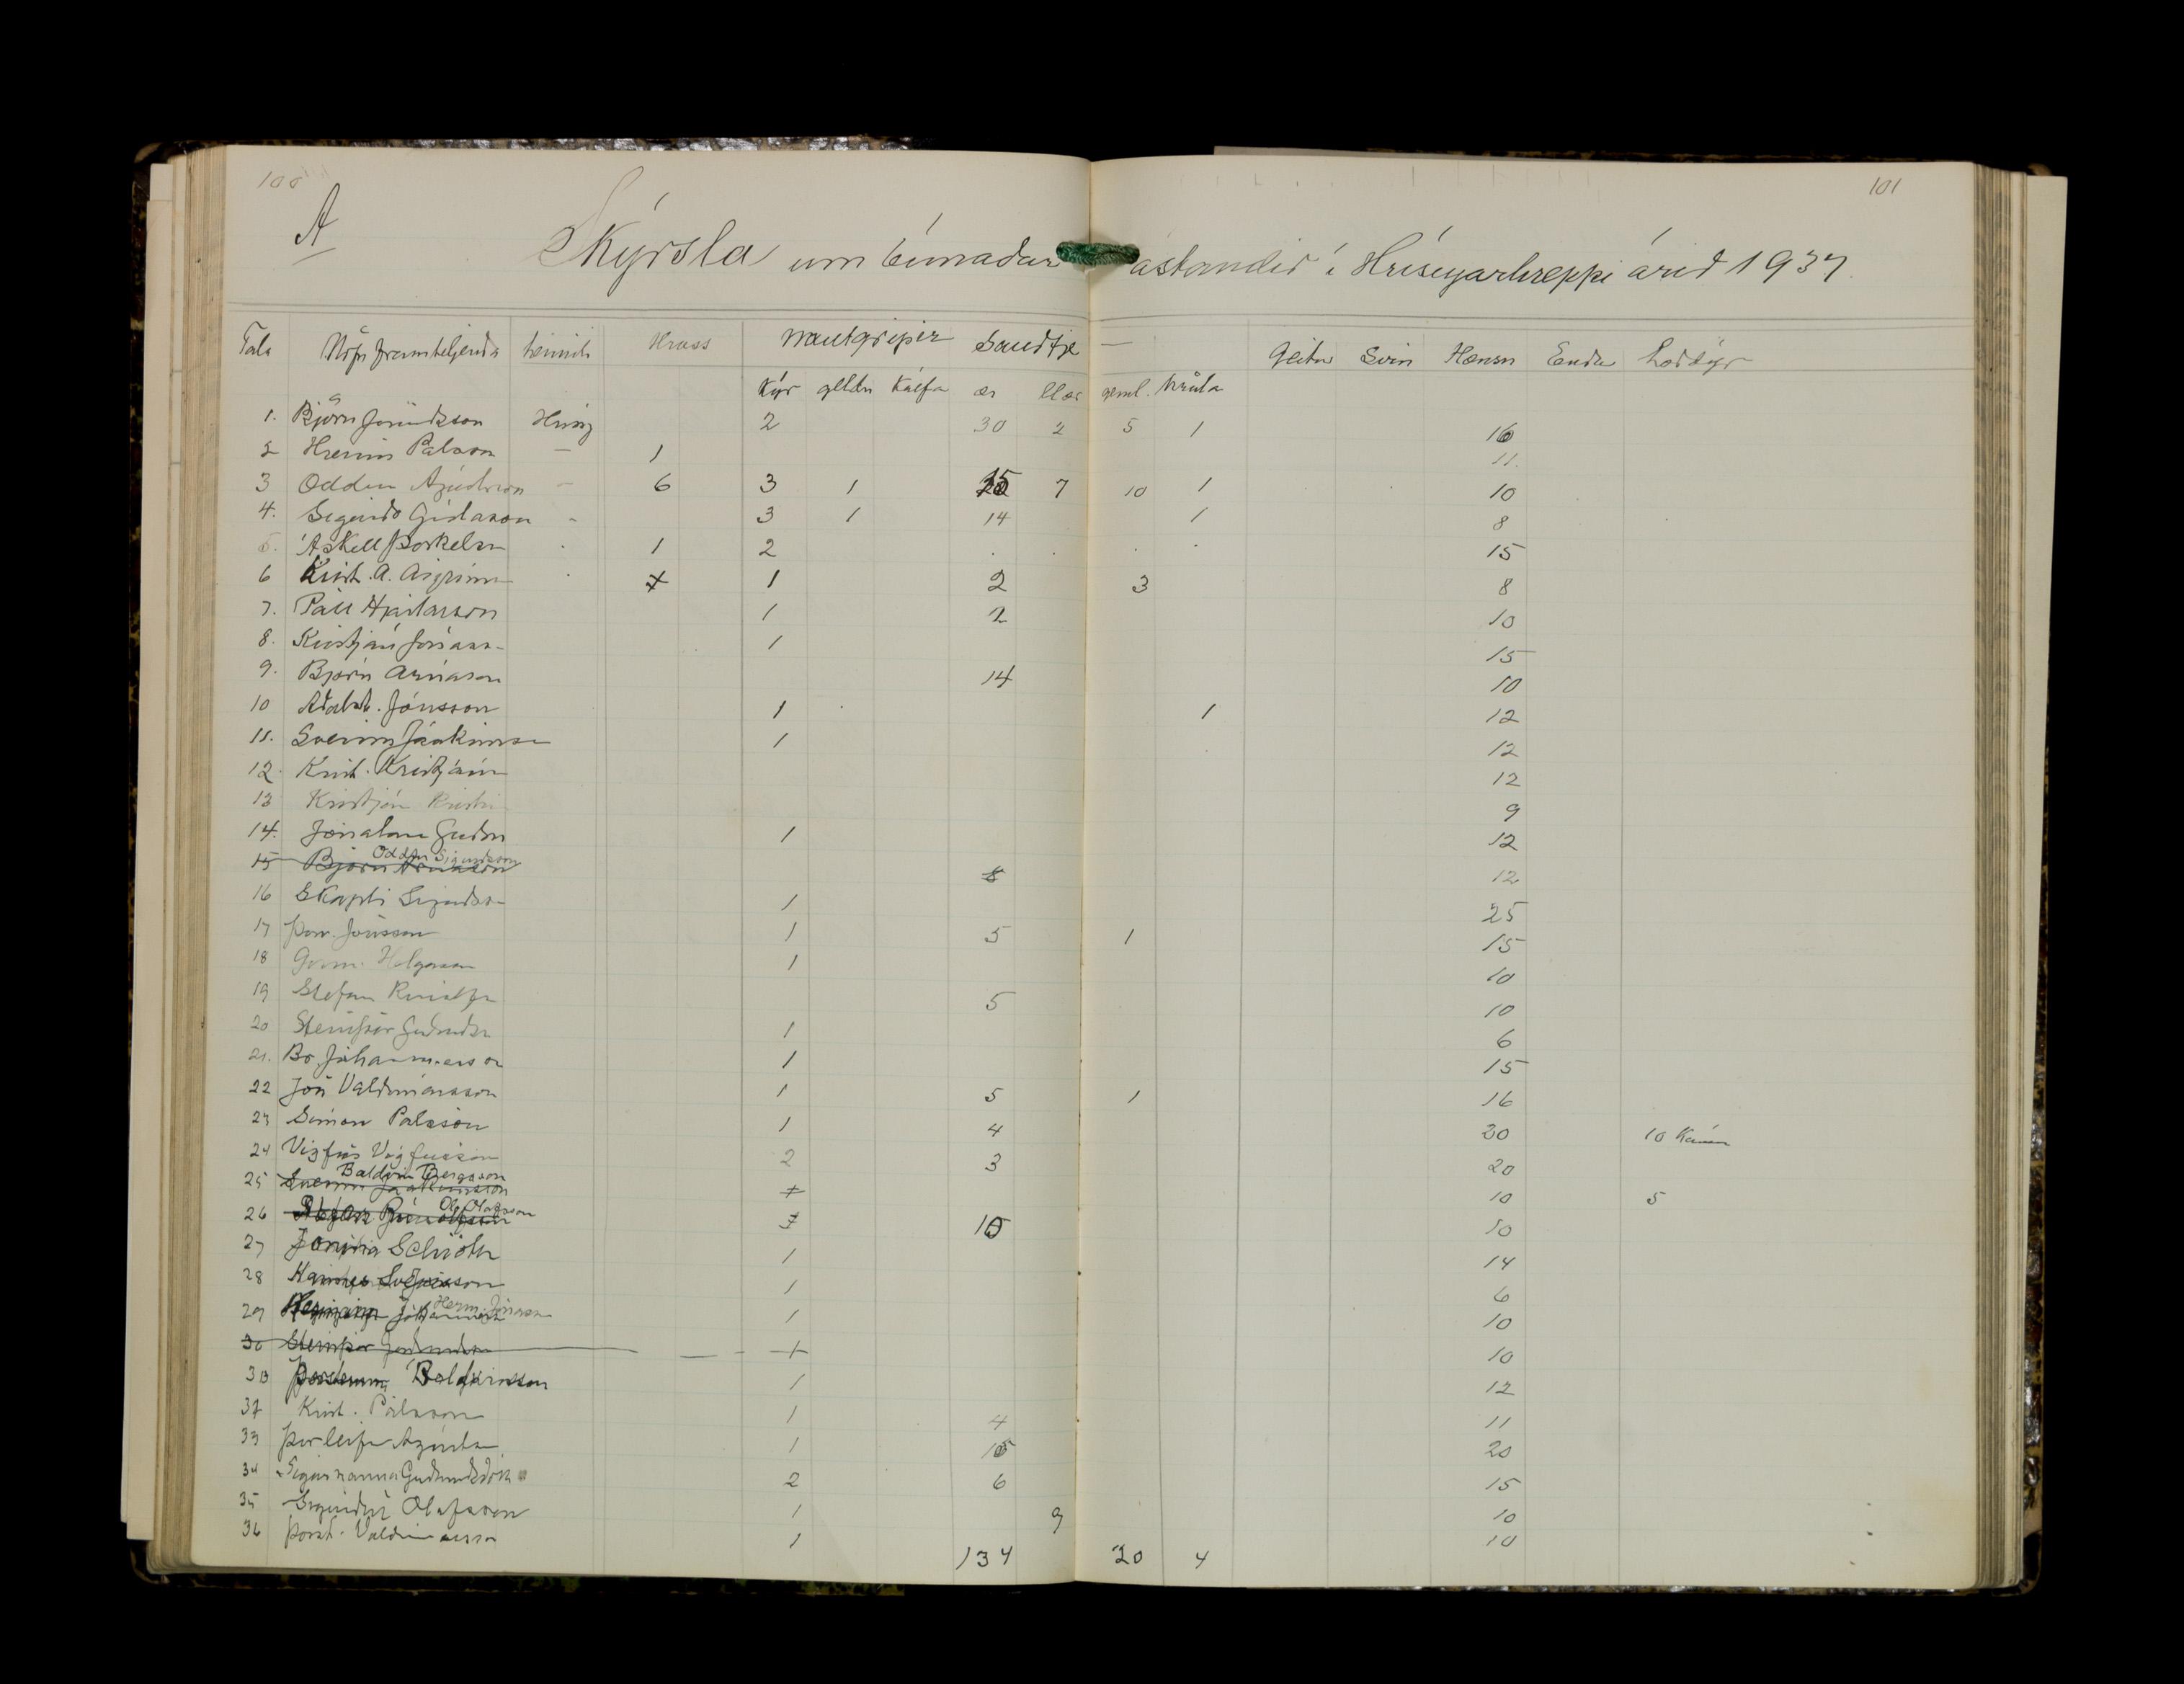 100
101
A
Skýrsla um búnaðar ástandið í Hríseyarhreppi árið 1937.
Tala Nöfn framteljenda heimili Hross Nautgripir Sauðfje — Geitur Svín Hænsn Endur Loðdýr
Kýr geldn Kálfa ær geml. hrúta
1. Björn Jörundsson Hrísey 2 30 2 5 1 16
2 Hreinn Pálsson — 1 11.
3 Oddur Ágústsson — 6 3 1 7 10 1 10
4. Sigurður Gíslason - 3 1 14 1 8
5. Áskell Þorkelsson 1 2 15
6 Krist. A. Ásgríms 1 2 3 8
7. Páll Hjartarson 1 2 10
8. Kristján Jónass 1 15
9. Björn Árnason 14 10
10 Aðalst. Jónsson 1 1 12
11. Sveinn Jóakimss 1 12
12. Krist. Kristjáns 12
13 Kristján 9
14. Jónatan Guðm 1 12
15 Björn Árnason Oddur Sigurðsson 8 12
16 Skapti Sigurðss 1 25
17 Þorv. Jónsson 1 5 1 15
18 Helgason 1 10
19 Stefán 5 10
20 Steinþór Guðmunds 1 6
21. Br. Jóhannesson 1 15
22 Jón Valdimarsson 1 5 1 16
23 Símon Pálsson 1 4 30 10
24 Vigfús Vigfússon 2 3 20
25 Sveinn Jóakimsson Baldvin Bergsson 10 5
26 Stefán Rúnólfsson Ól. Ólafsson 10 10
27 Schiöth 1 14
28 1 6
29 Jóhanness Herm. Jónasson 1 10
30 Steinþór Guðmunds — — - 1 10
30 Þorsteinn Baldvinsson 1 12
32 Krist. Pálsson 1 4 11
33 Þorleifur Ágústss 1 10 20
34 Sigurhanna Guðmundsdótt 2 6 15
35 Sigurður Ólafsson 1 9 10
36 Þorst. Valdimarss 1 10
134 20 4